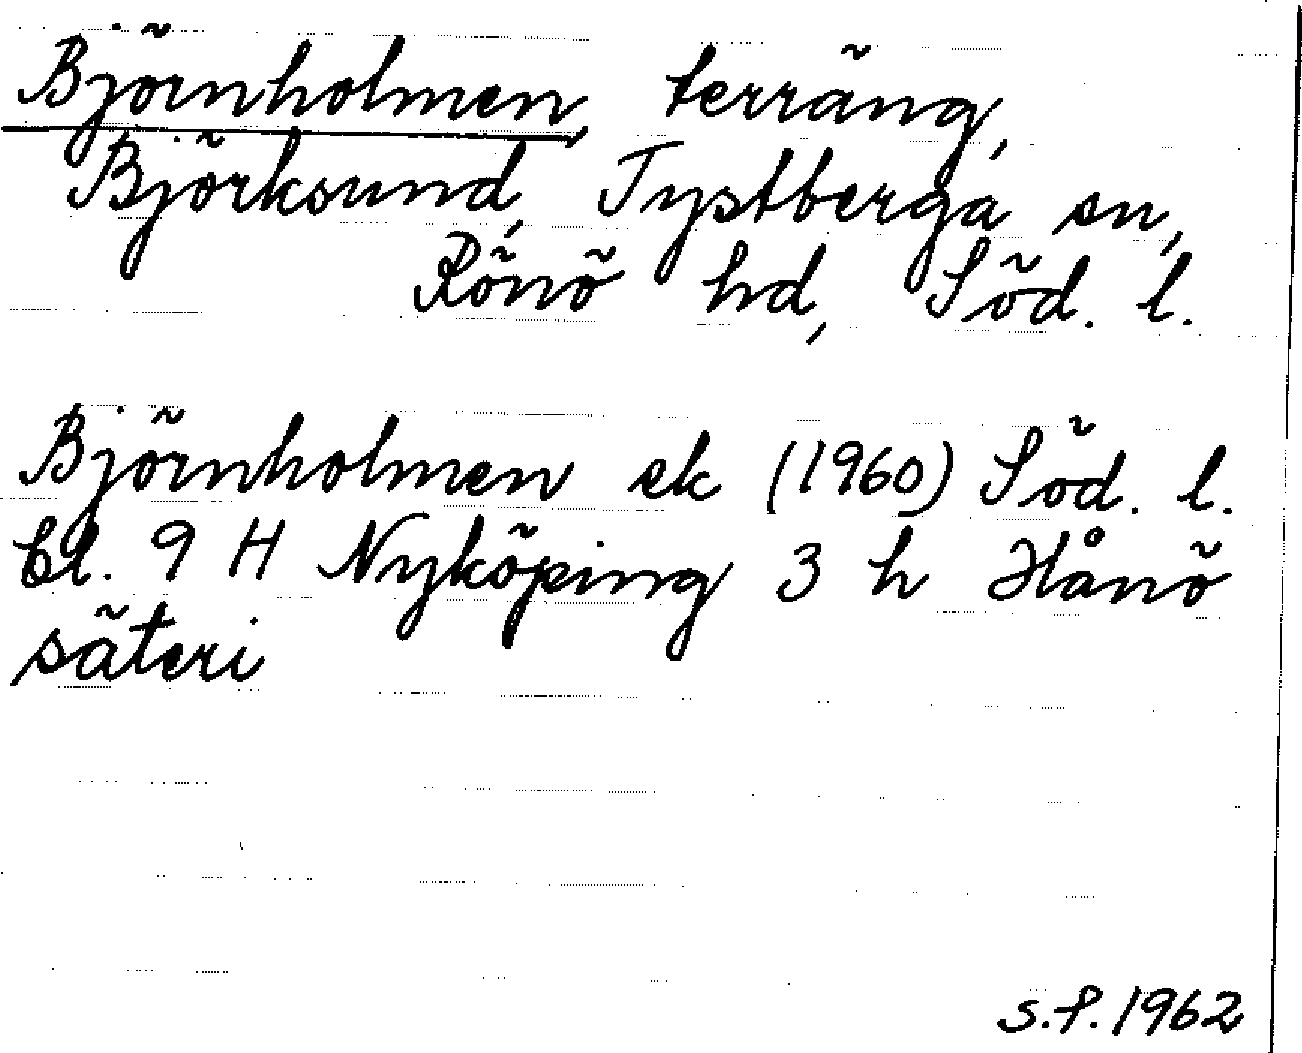 Björnholmen, terräng,
Björksund, Tystberga sn,
Rönö hd, Söd. l.
Björnholmen ek (1960) Söd. l.
bl. 9 H Nyköping 3 h Hånö
säteri
S.F. 1962